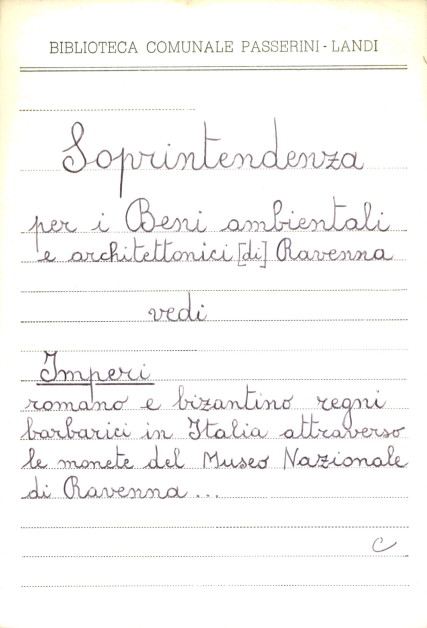 BIBLIOTECA COMUNALE PASSERINI - LANDI
Soprintendenza
per i Beni ambientali
e architettonici [di] Ravenna
vedi
Imperi
romano e bizantino regni
barbarici in Italia attraverso
le monete del Museo Nazionale
di Ravenna...
C